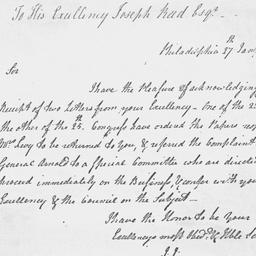 To His Excellency Joseph Read Esqr.
Philadelphia 27th Jany
Sir
I have the Pleasure of acknowledging
Receipt of two Letters from your Excellency. One of the 2
the other of the 25. Congress have ordered the Papers
Mr Levy to be returned to you, & referred the Complaint
General Arnold to a special Committee who are direct
proceed immediately on the Business, & confer with you
Excellency & the Council on the Subject
I have the Honor to be your
Excellencys most Obedt. & Hble Se
J. J.